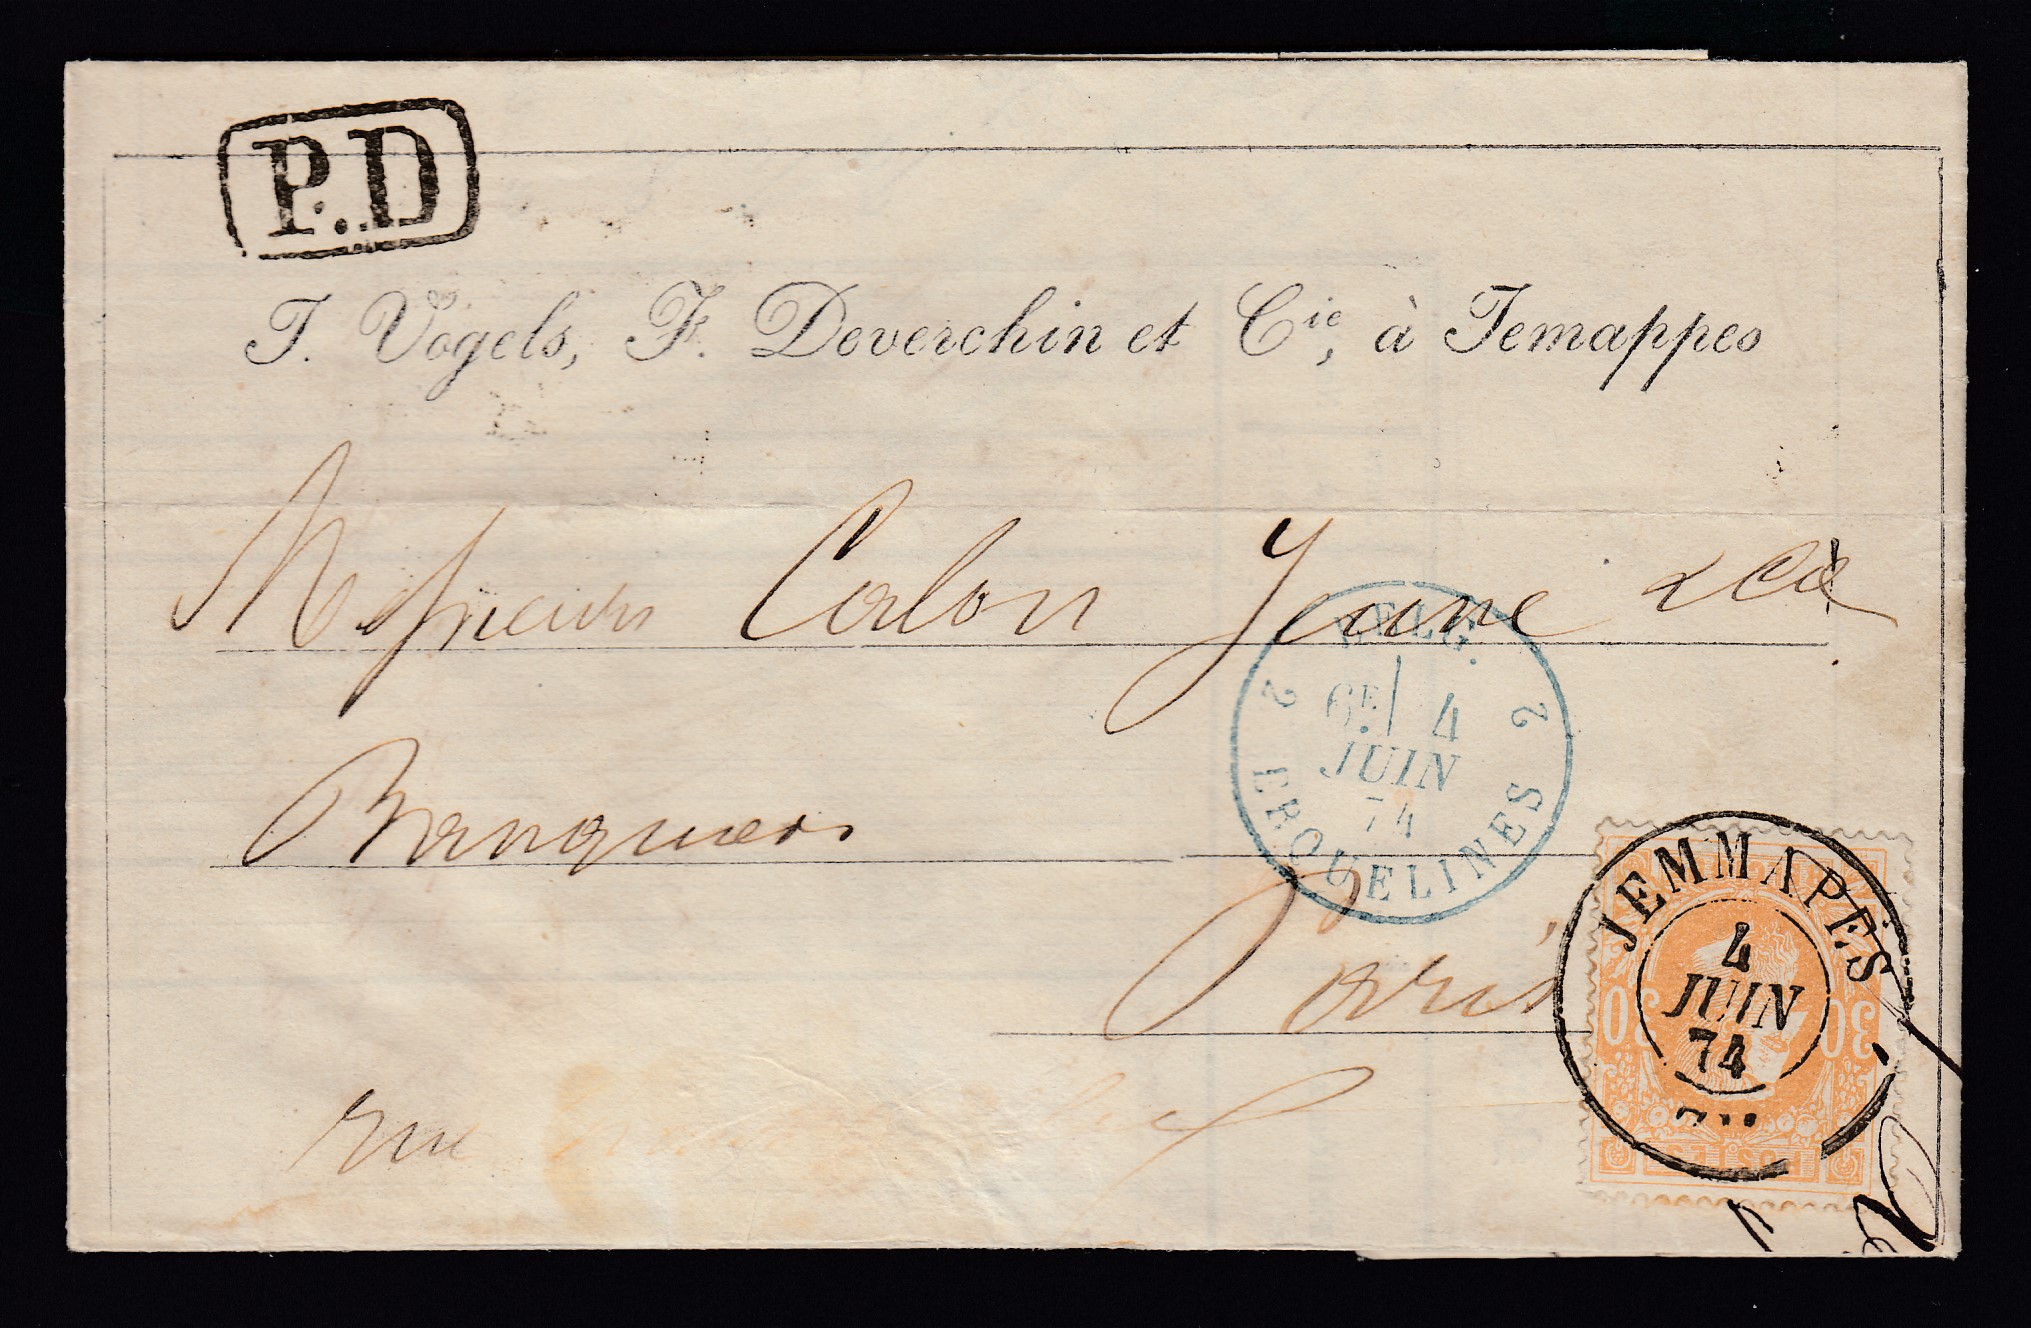 P.D
J. Vogels, F. Deverchin et Cie, à Jemappes
Messieurs Calon Jeune & Cie
BELG.
2 6E. 4 2
JUIN
74
ERQUELINES
Banquiers
Paris
JEMMAPES
4
JUIN
74
30 30
rue